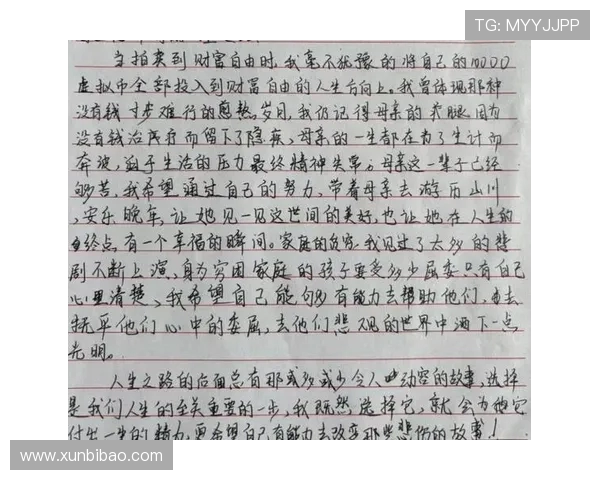 TG: MYYJJPP
当拍卖到财富自由时,我毫不犹豫的将自己的10000
虚拟币全部投入到财富自由的人生方向上。我曾体现那种
没有钱寸步难行的 岁月,我仍记得母亲的 腿,因为
没有钱治疗而留下了隐疾,母亲的一生都在为了生计而
奔波,迫于生活的压力最终精神失常。母亲这一辈子已经
够苦,我希望通过自己的努力,带着母亲去游历山川
,安乐晚年,让她见一见这世间的美好,也让她在人生的
终点有一个幸福的瞬间。家庭的贫穷,我见过了太多的悲
剧不断上演,身为穷困家庭的孩子要受多少屈委只有自己
心里清楚,我希望自己能够有能力去帮助他们,去
抚平他们心中的委屈,去他们悲观的世界中洒下一点
光明。
人生之路的后面总有那或多或少令人动容的故事,选择
是我们人生的至关重要的一步,我既然选择它,就会为他
付出一生的精力,更希望自己有能力去改变那些悲伤的故事!
www.xunbibao.com